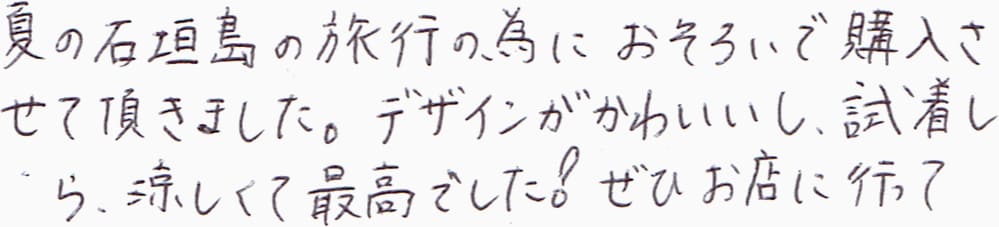 夏の石垣島の旅行の為に おそろいで購入さ
せて頂きました。デザインがかわいいし、試着し
ら、涼しくて最高でした! ぜひお店に行って